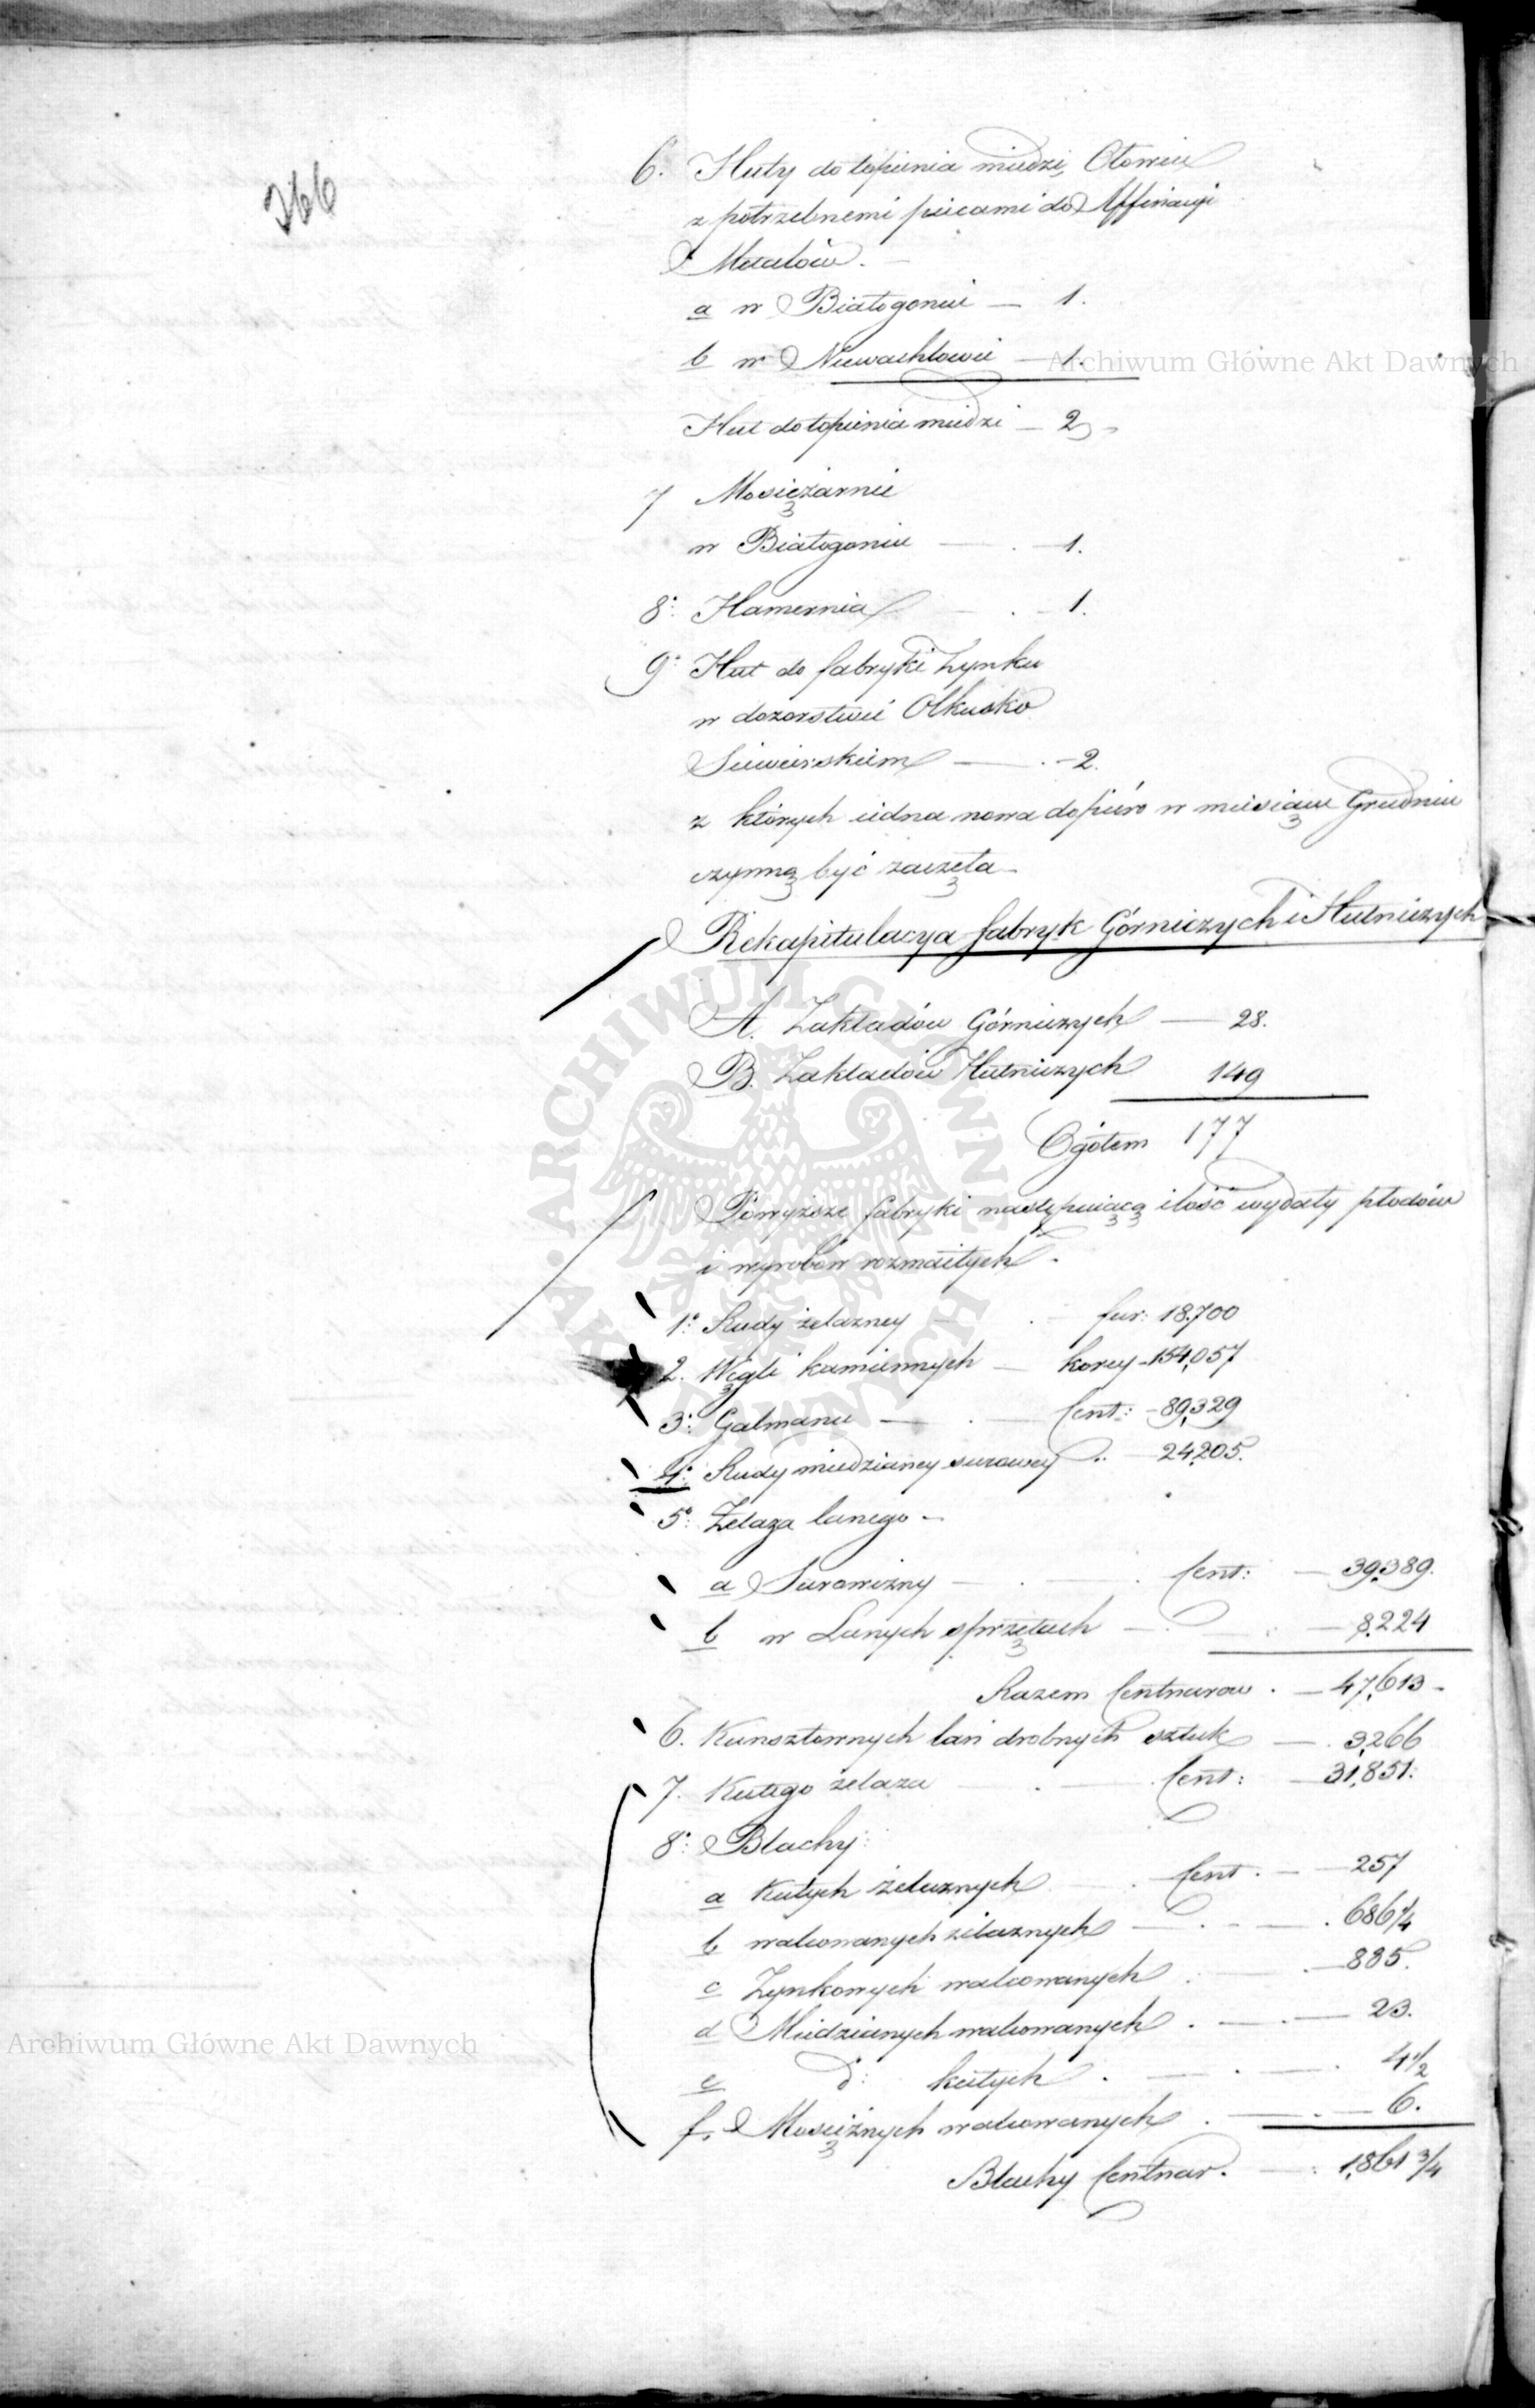 366
6. Huty do topienia miedzi, Ołowiu
z potrzebnemi piecami do Affinacyi
Metalów. —
a w Białogonie — 1.
b w Niewachlowie — 1.
Hut do topienia miedzi — 2
7 Mosiężarnie
w Białogonie — 1.
8. Hamernia — 1.
9. Hut do fabryki Zynku
w dozorstwie Olkusko
Siewierskiem — 2.
z których iedna nowa dopiéro w miesiącu Grudniu
czynną być zaczęta —
Rekapitulacya fabryk Górniczych i Hutniczych
A. Zakładów Górniczych — 28.
B. Zakładów Hutniczych 149
Ogółem 177
Powyższe fabryki następuiącą ilość wydały płodów
i wyrobów rozmaitych.
1. Rudy żelazney — fur: 18,700
2. Węgli kamiennych — korcy — 154,057
3. Galmanu — Cent: — 89,329
4. Rudy miedzianey surowey — 24,205.
5. Żelaza lanego —
a Surowizny — Cent: — 39,389.
b w Lanych sprzętach — 8,224
Razem Centnarow — 47,613 —
6. Kunsztownych lań drobnych sztuk — 3,266
7. Kutego żelaza — Cent: — 31,851.
8. Blachy:
a Kutych żelaznych — Cent. — 257
b walcowanych żelaznych — 686 1/4
c Zynkowych walcowanych — 885.
d Miedzianych walcowanych — 23.
e d: kutych — 4 1/2
f. Mosiężnych walcowanych — 6.
Blachy Centnar. — 1,861 3/4
Archiwum Główne Akt Dawnych
Archiwum Główne Akt Dawnych
ARCHIWUM GŁÓWNE AKT DAWNYCH